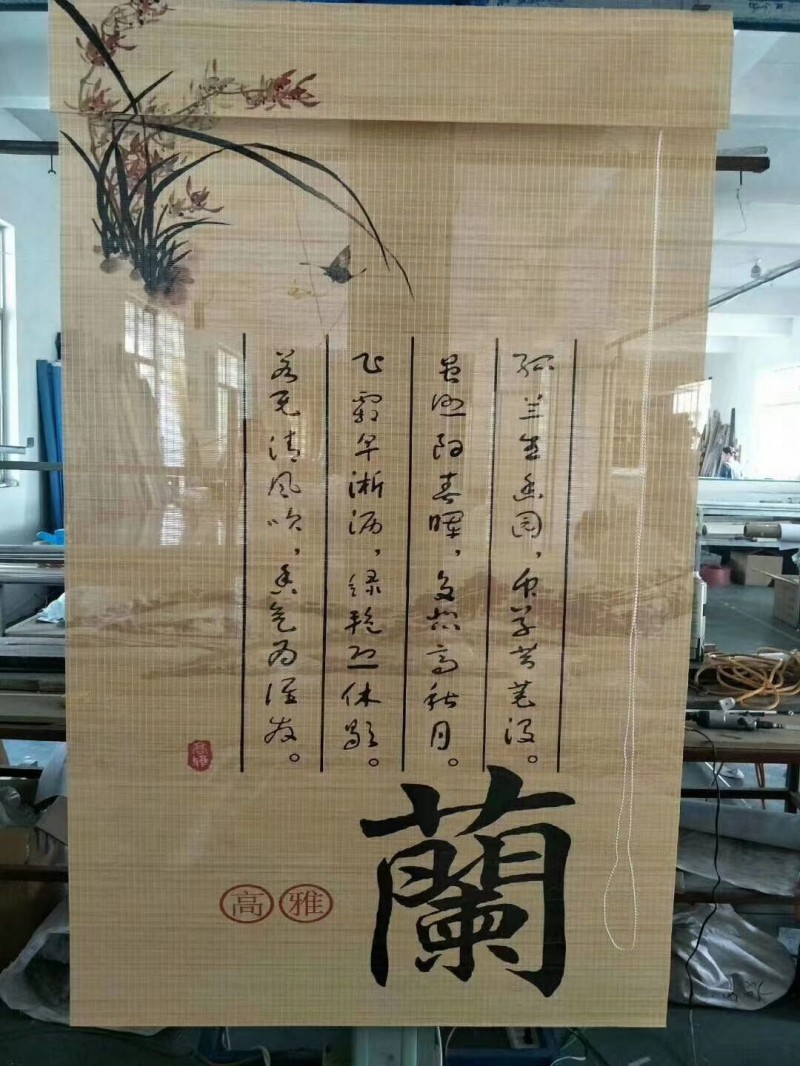 孤兰生幽园，众草共芜没。
虽照阳春晖，复悲高秋月。
飞霜早淅沥，绿艳恐休歇。
若无清风吹，香气为谁发。
蘭
高雅